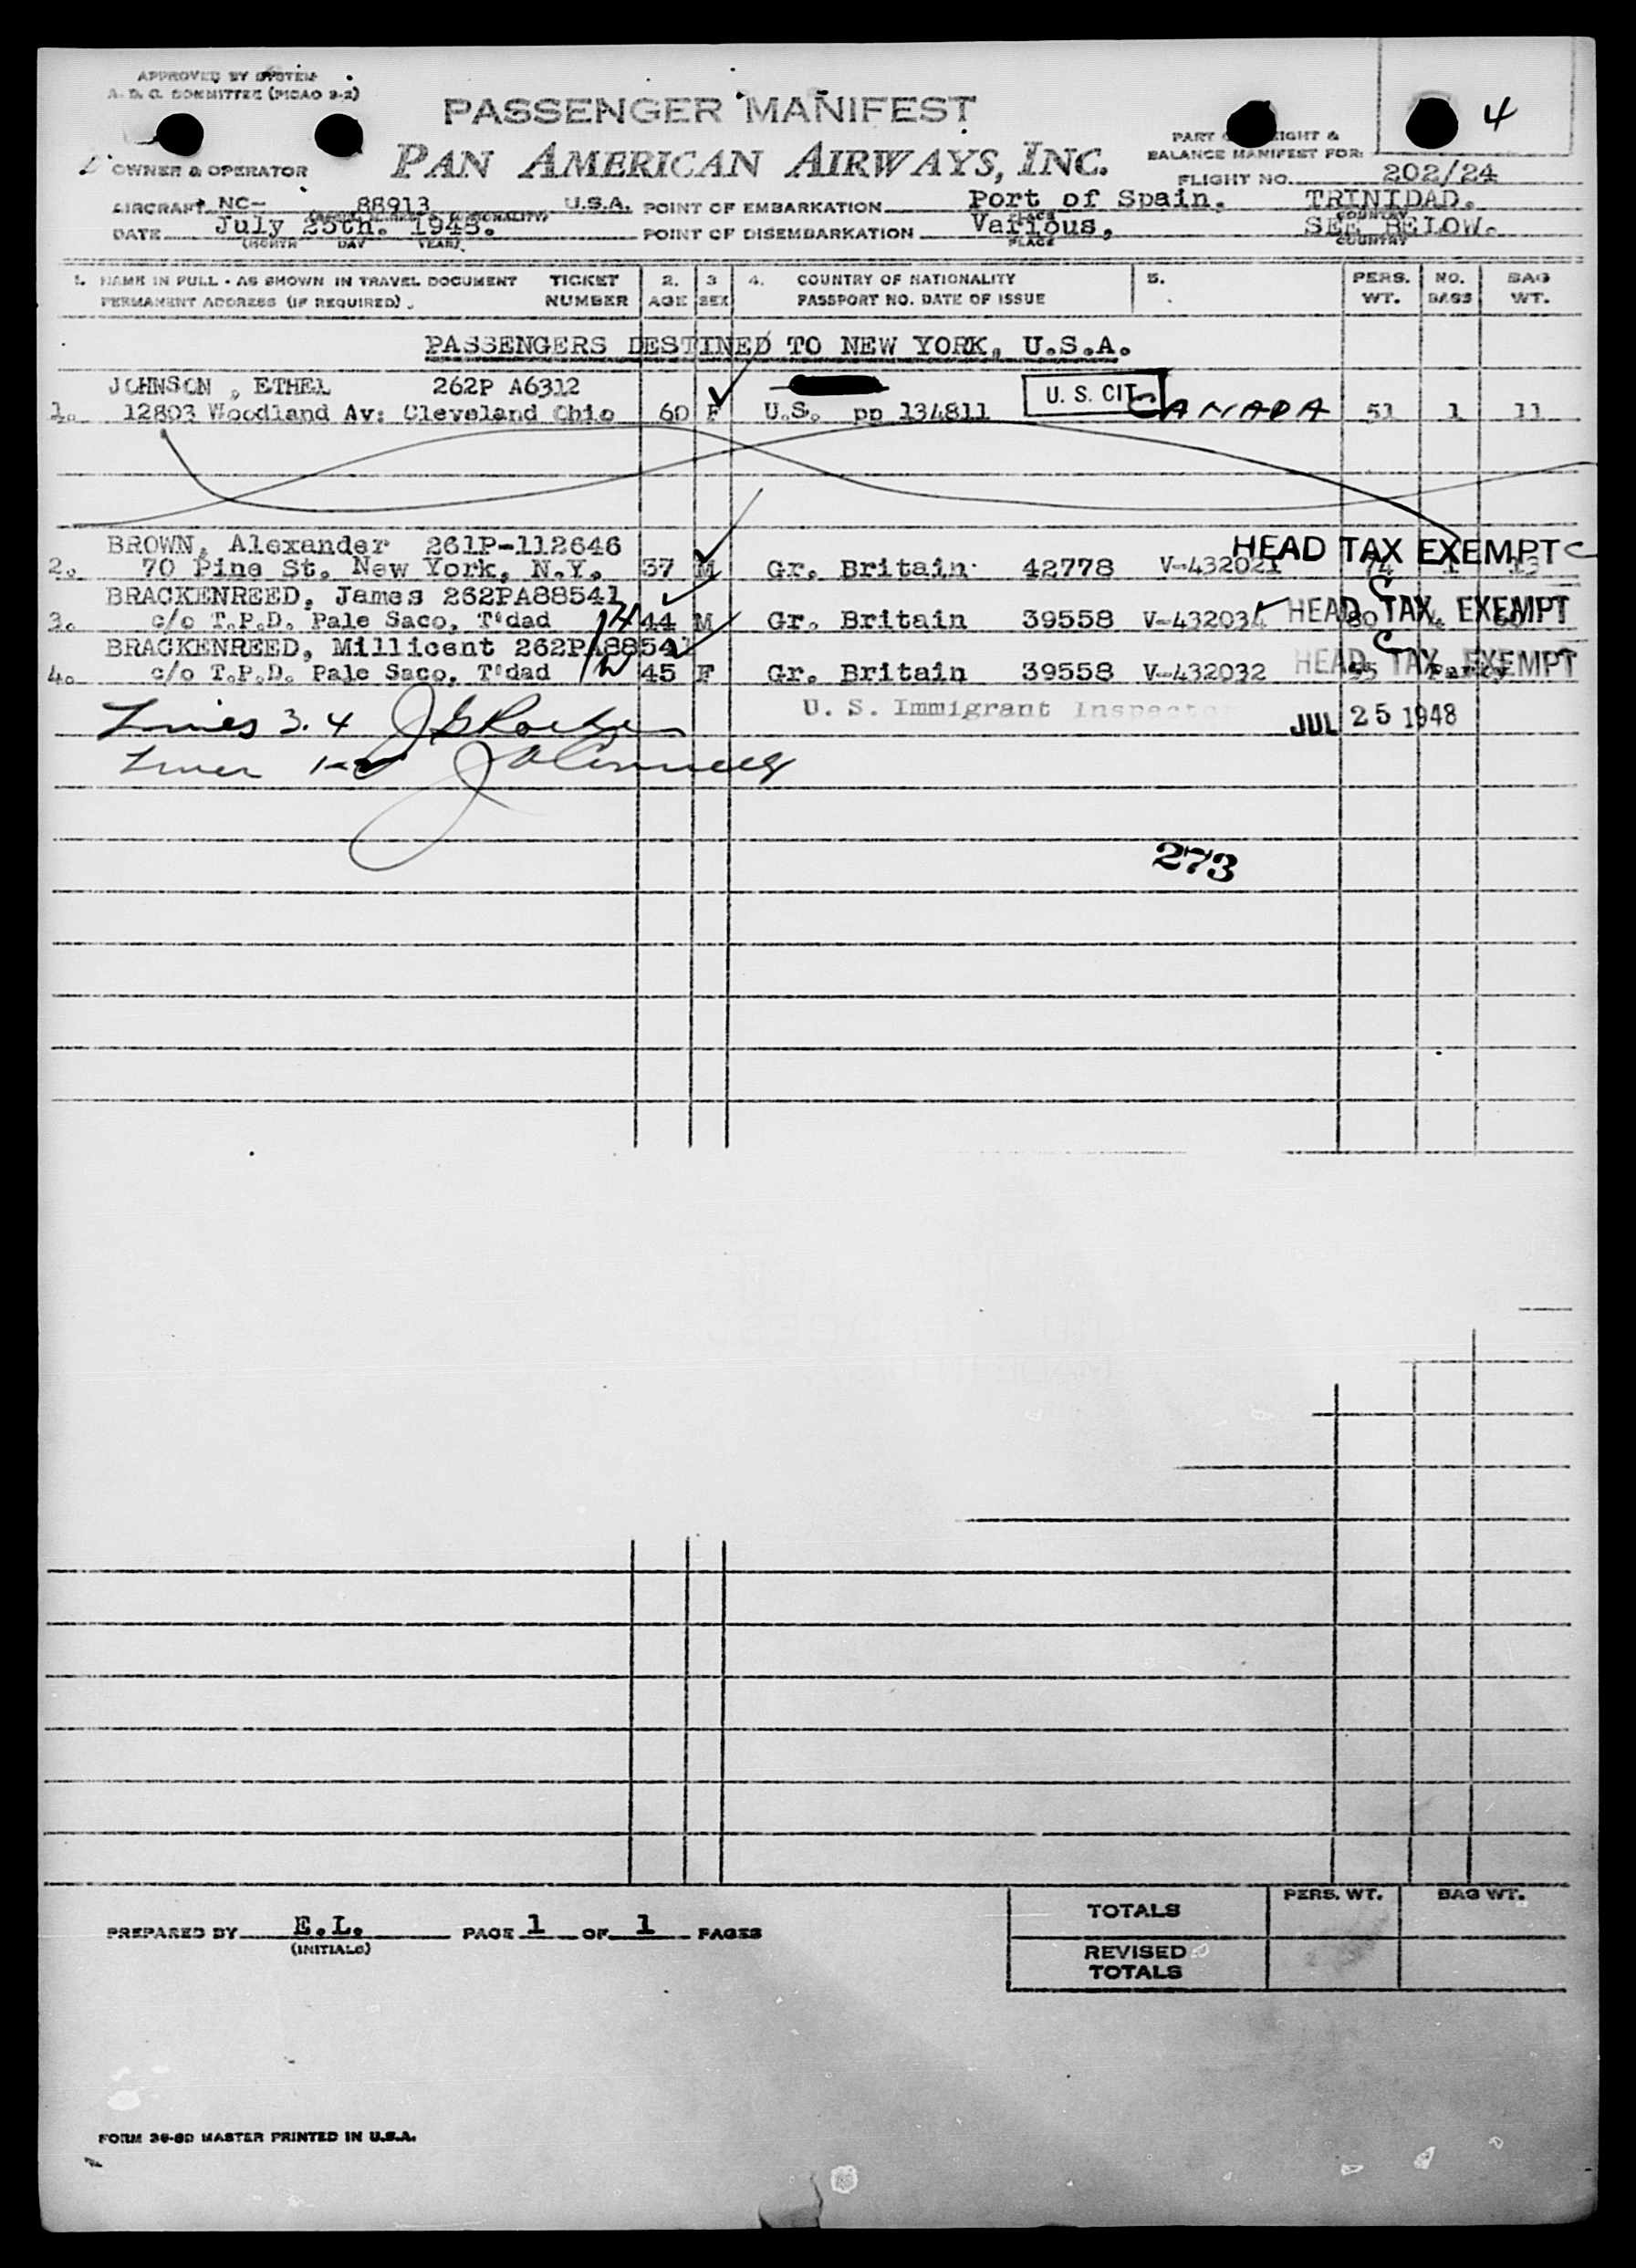 APPROVED BY SYSTEM
A. D. C. COMMITTEE (PICAO 2-2)
PASSENGER MANIFEST
4
PAN AMERICAN AIRWAYS, INC.
PART & 
BALANCE MANIFEST FOR:
OWNER & OPERATOR
FLIGHT NO. 202/24
AIRCRAFT NC- 88913 U.S.A. POINT OF EMBARKATION Port of Spain, TRINIDAD.
PLACE COUNTRY
DATE July 25th. 1948. POINT OF DISEMBARKATION Various, SEE BELOW.
(MONTH DAY YEAR) PLACE COUNTRY
1. NAME IN FULL - AS SHOWN IN TRAVEL DOCUMENT TICKET 2. 3 4. COUNTRY OF NATIONALITY 5. PERS. NO. BAG
PERMANENT ADDRESS (IF REQUIRED). NUMBER AGE SEX PASSPORT NO. DATE OF ISSUE WT. BAGS WT.
PASSENGERS DESTINED TO NEW YORK, U.S.A.
JOHNSON , ETHEL 262P A6312
1. 12803 Woodland Av: Cleveland Ohio 60 F U.S. pp 134811 U. S. CIT CANADA 51 1 11
BROWN, Alexander 261P-112646 HEAD TAX EXEMPT C
2. 70 Pine St. New York, N.Y. 37 M Gr. Britain 42778 V-432021 74 1 13
BRACKENREED, James 262PA88541 C
3. c/o T.P.D. Pale Saco, T'dad 44 M Gr. Britain 39558 V-432034 HEAD TAX EXEMPT 80
BRACKENREED, Millicent 262PA88542 C
4. c/o T.P.D. Pale Saco, T'dad 45 F Gr. Britain 39558 V-432032 HEAD TAX EXEMPT 55
U. S. Immigrant Inspector JUL 25 1948
Lines 3. 4
273
TOTALS PERS. WT. BAG WT.
PREPARED BY E.L. PAGE 1 OF 1 PAGES
(INITIALS)
REVISED
TOTALS
FORM 36-8D MASTER PRINTED IN U.S.A.